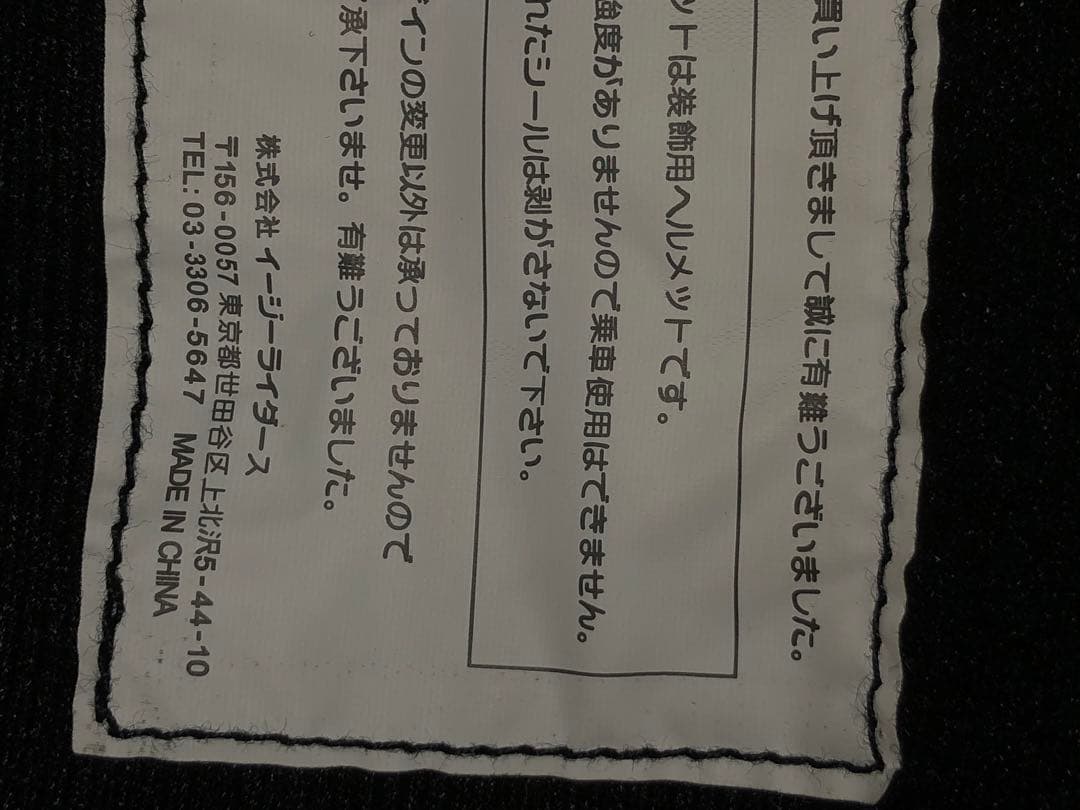 買い上げ頂きまして誠に有難うございました。
ットは装飾用ヘルメットです。
強度がありませんので乗車使用はできません。
れたシールは剥がさないで下さい。
インの変更以外は承っておりませんので
承下さいませ。有難うございました。
株式会社 イージーライダース
〒156-0057 東京都世田谷区上北沢5-44-10
TEL: 03-3306-5647 MADE IN CHINA